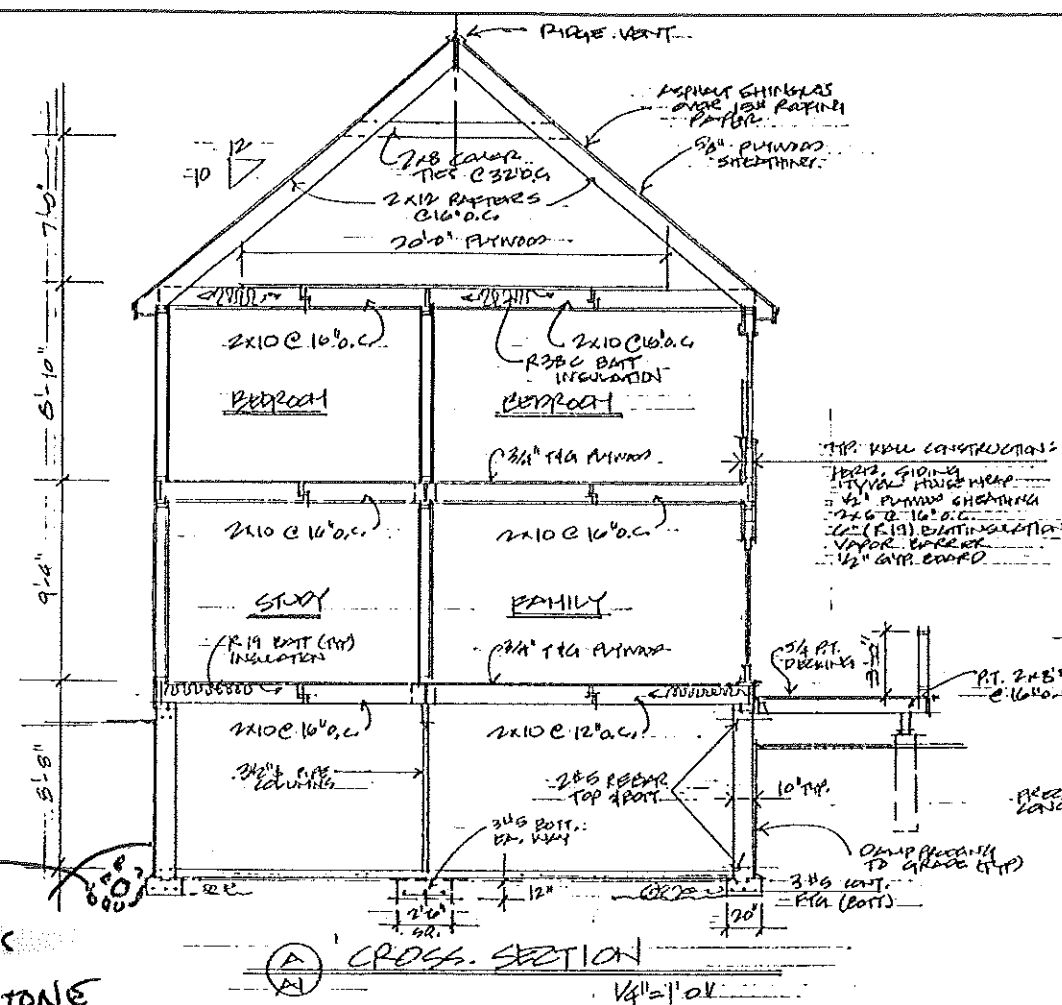 RIDGE VENT
ASPHALT SHINGLES
OVER 15# ROOFING
PAPER
5/8" PLYWOOD
SHEATHING
12
10
2x8 COLLAR
TIES @ 32" O.C.
2x12 RAFTERS
@ 16" O.C.
20'-0" PLYWOOD
7'-6"
2x10 @ 16" O.C.
2x10 @ 16" O.C.
R38C BATT
INSULATION
BEDROOM
BEDROOM
8'-10"
3/4" T&G PLYWOOD
TYP. WALL CONSTRUCTION:
HORZ. SIDING
TYVEK HOUSE WRAP
1/2" PLYWD SHEATHING
2x6 @ 16" O.C.
6" (R19) BATT INSULATION
VAPOR BARRIER
1/2" GYP. BOARD
2x10 @ 16" O.C.
2x10 @ 16" O.C.
9'-4"
STUDY
FAMILY
R19 BATT (TYP)
INSULATION
3/4" T&G PLYWOOD
5/4 P.T.
DECKING
P.T. 2x8's
@ 16" O.
2x10 @ 16" O.C.
2x10 @ 12" O.C.
8'-8"
3 1/2" ϕ PIPE
COLUMNS
2 #5 REBAR
TOP & BOTT.
10" TYP.
3 #5 BOTT.
EA. WAY
DAMPPROOFING
TO GRADE (TYP)
12"
3 #5 CONT.
FTG (BOTT)
2'-6"
SQ.
20"
A
A1
CROSS SECTION
1/4" = 1'-0"
TONE